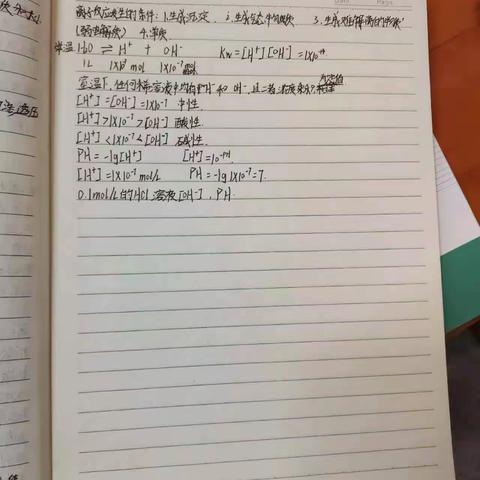 离子反应发生的条件：1.生成沉淀 2.生成气体 3.生成难解离的物质
(弱电解质) 4.单质
常温 H₂O ⇌ H⁺ + OH⁻ Kw=[H⁺][OH⁻]=1×10⁻¹⁴
1L 1×10⁻⁷mol 1×10⁻⁷mol
室温下,任何稀溶液中均有H⁺和OH⁻,且二者浓度乘积
[H⁺]=[OH⁻]=1×10⁻⁷ 中性
[H⁺]>1×10⁻⁷>[OH⁻] 酸性
[H⁺]<1×10⁻⁷<[OH⁻] 碱性
PH=-lg[H⁺] [H⁺]=10⁻ᴾᴴ
[H⁺]=1×10⁻⁷mol/L PH=-lg1×10⁻⁷=7
0.1mol/L的HCl溶液[OH⁻],PH